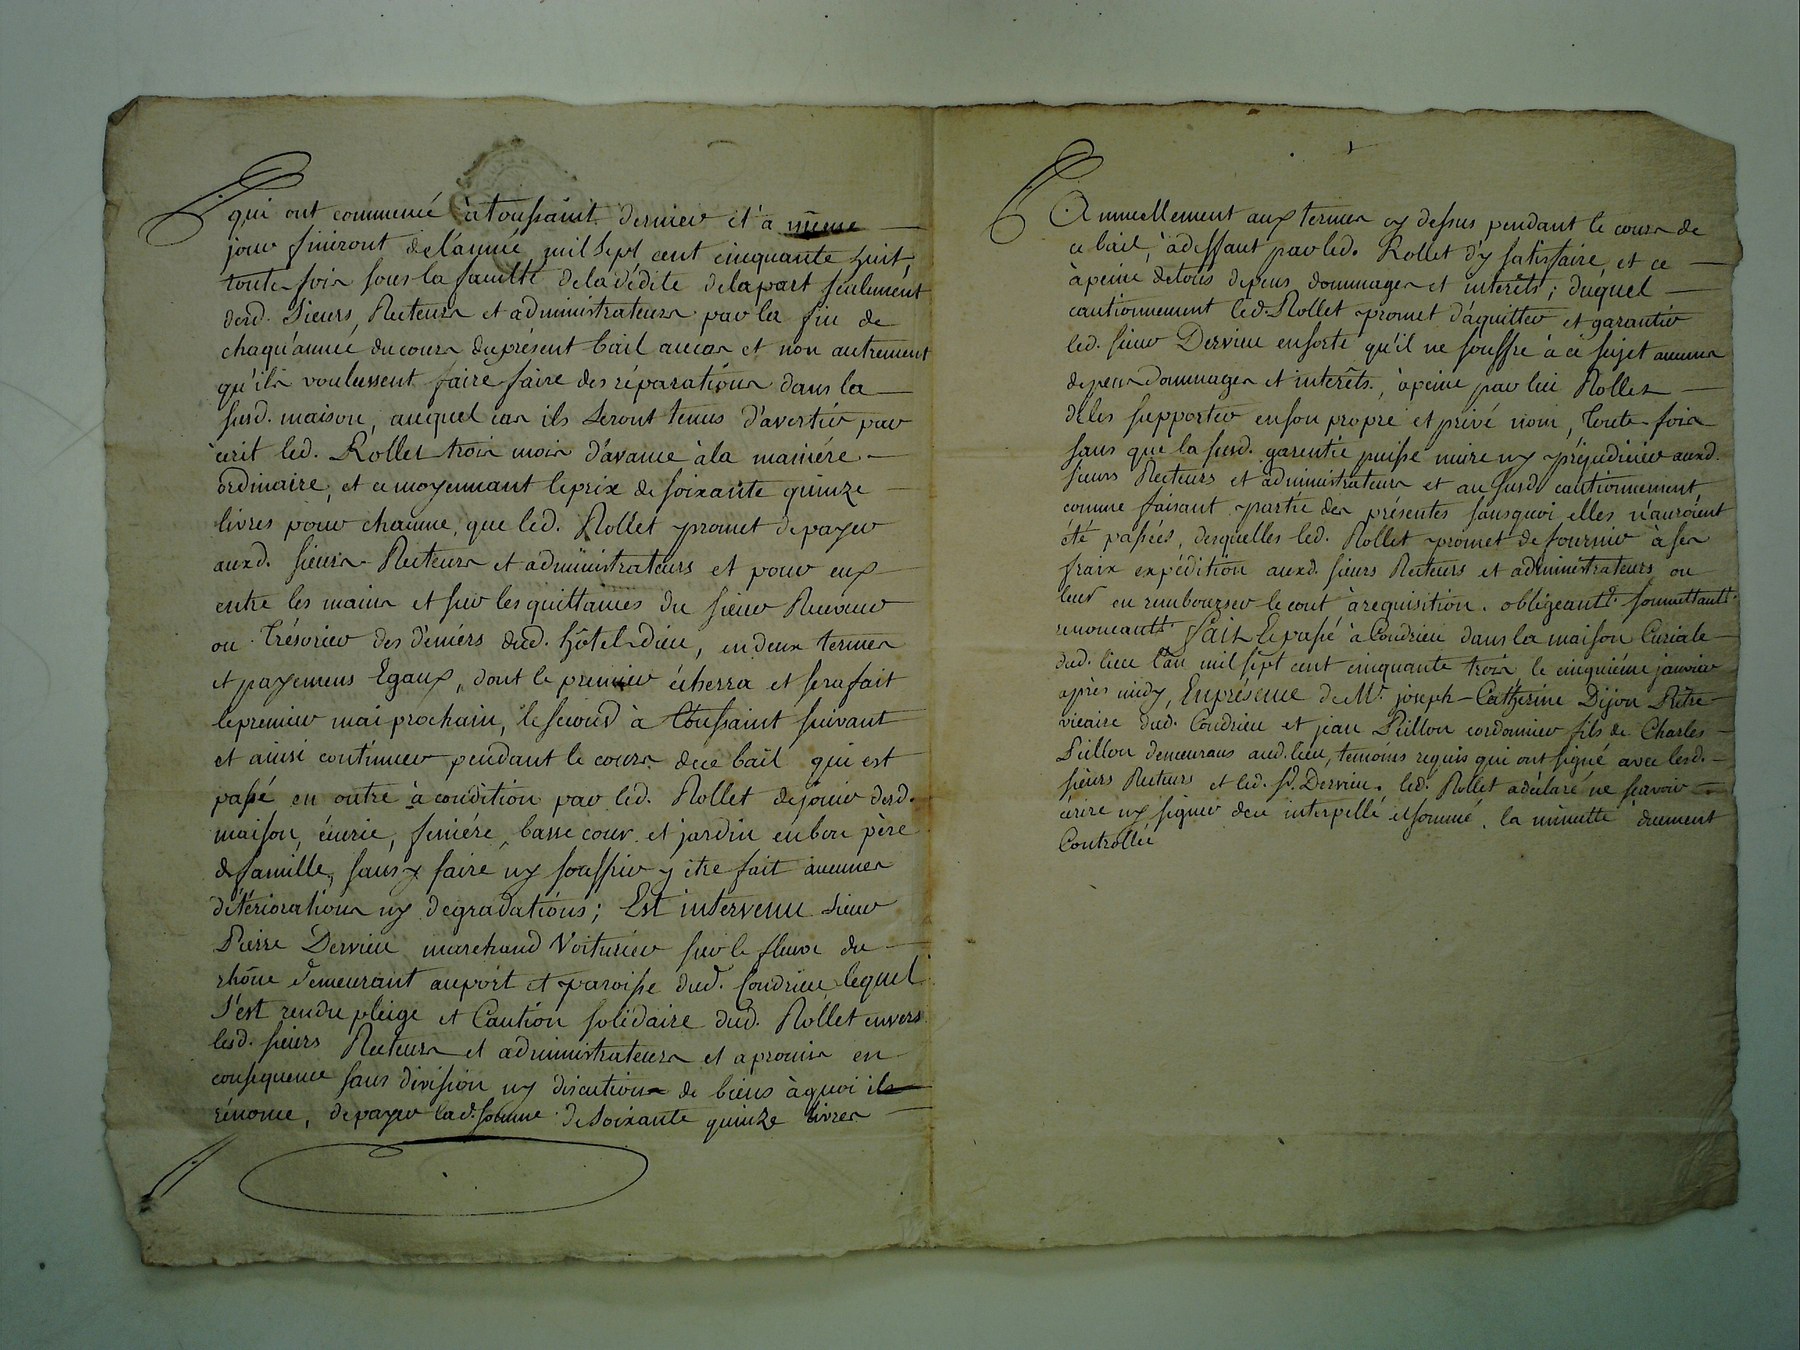 qui ont commencé à toussaint dernier et à même
jour finiront de l'année mil sept cent cinquante huit,
toute fois sous la faculté de la dédite de la part seulement
desd. sieurs, Recteurs et administrateurs par la fin de
chaqu'année du cours du présent bail aucas et non autrement
qu'ils voulussent faire faire des réparations dans la
susd. maison, auquel cas ils seront tenus d'avertir par
écrit led. Rollet trois mois d'avance à la maniére
ordinaire, et ce moyennant le prix de soixante quinze
livres pour chacune, que led. Rollet promet de payer
auxd. sieurs Recteurs et administrateurs et pour eux
entre les mains et sur les quittances du sieur Receveur
ou Trésorier des deniérs dud. hôtel-dieu, en deux termes
et payemens Egaux, dont le premier écherra et sera fait
le premier mai prochain, le second à Toussaint suivant
et ainsi continuer pendant le cours dece bail qui est
passé en outre à condition par led. Rollet de jouir desd.
maison, écurie, feniére, basse cour et jardin en bon père
de famille, sans y faire ny souffrir y être fait aucunes
déteriorations ny degradations; Est intervenu sieur
Pierre Dervieu marchand Voiturier sur le fleuve du
rhône demeurant au port et paroisse dud. Condrieu lequel
s'est rendu pleige et Caution solidaire dud. Rollet envers
lesd. sieurs Recteurs et administrateurs et a promis en
consequence sans division ny discution de biens à quoi il
rénonce, de payer lad. somme de soixante quinze livres
Annuellement aux termes cy dessus pendant le cours de
ce bail, à deffaut par led. Rollet d'y satisfaire, et ce
à peine de tous depens dommages et interêts; duquel
cautionnement led. Rollet promet d'aquitter et garantir
led. sieur Dervieu ensorte qu'il ne souffre à ce sujet aucuns
depens dommages et interêts, à peine par lui Rollet
de les supporter en son propre et privé nom, toute fois
sans que la susd. garentie puisse nuire ny préjudicier auxd.
sieurs Recteurs et administrateurs et au susd. cautionnement
comme faisant partie des présentes sans quoi elles n'auroient
été passées, desquelles led. Rollet promet de fournir à ses
fraix expédition auxd. sieurs Recteurs et administrateurs ou
leur en rembourser le cout à requisition. obligeantt. soumettantt.
renonceantt. fait Et passé à Condrieu dans la maison Curiale
dud. lieu l'an mil sept cent cinquante trois le cinquiéme janvier
après midy, En présence de Mr. joseph-Catherine Dijon Prêtre
vicaire dud. Condrieu et jean Pillon cordonnier fils de Charles
Pillon demeurans aud. lieu, temoins requis qui ont signé avec lesd.
sieurs Recteurs et led. sr. Dervieu. led. Rollet a déclaré ne sçavoir
écrire ny signer de ce interpellé et sommé. la minutte duement
Controllée